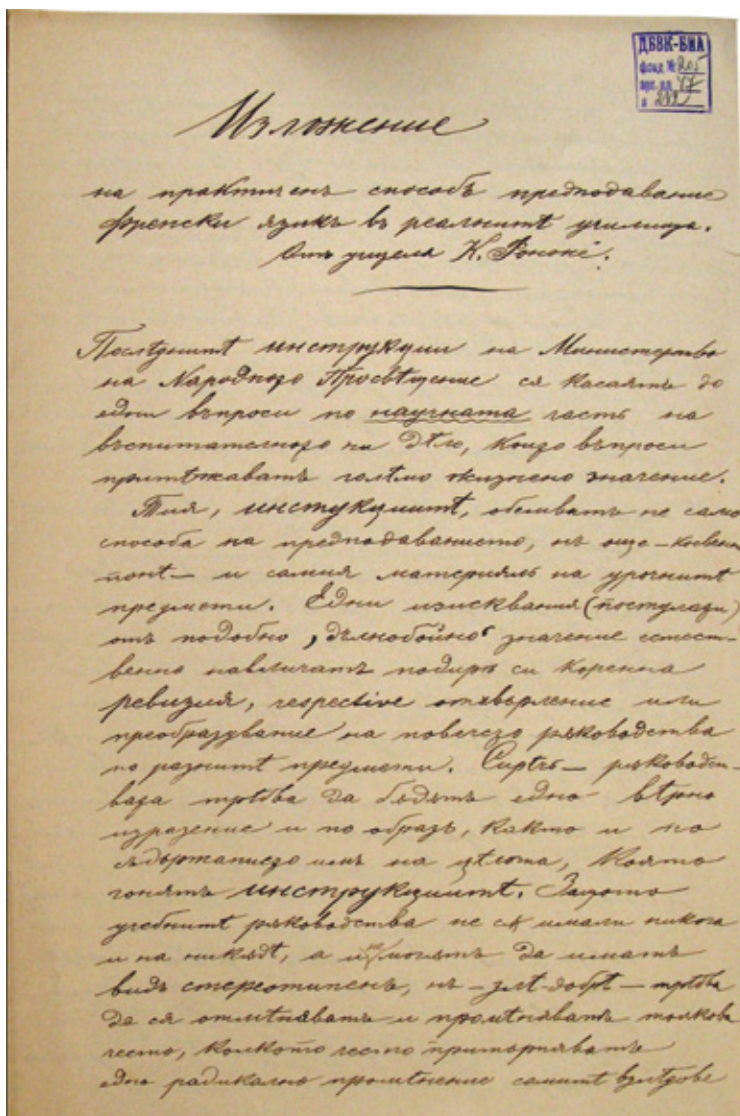 ДБВК-БИА
фонд № 205
Изложение
на практиченъ способъ предподавание
френски язикъ въ реалнитѣ училища.
Отъ учителя К.
Послѣднитѣ инструкции на Министерство
на Народното Просвѣщение ся касаятъ до
едни въпроси по научната часть на
въспитателното ни дѣло, които въпроси
притѣжаватъ голѣмо жизнено значение.
Тия, инстукциитѣ, обсиватъ не само
способа на предподаванието, нъ още – косвенно
понѣ – и самия материялъ на урочнитѣ
предмети. Едни изисквания (постулати)
отъ подобно „дълнобойно“ значение естест-
венно навличатъ подирь си коренна
ревизия, respective отхвърление или
преобразувание на повечето рѫководства
по разнитѣ предмети. Сирѣчь – рѫководст-
вата трѣбва да бѫдѫтъ едно вѣрно
изражение и по образъ, както и по
съдържанието имъ на цѣльта, която
гонятъ инструкциитѣ. Защото
учебнитѣ рѫководства не сѫ имали никога
и на никѫдѣ, а и не могѫтъ да иматъ
видъ стереотипенъ, нъ – злѣ-добрѣ – трѣбва
да ся отмѣняватъ и промѣняватъ толкова
често, колкото често притърпяватъ
едно радикално промѣнение самитѣ възгледове